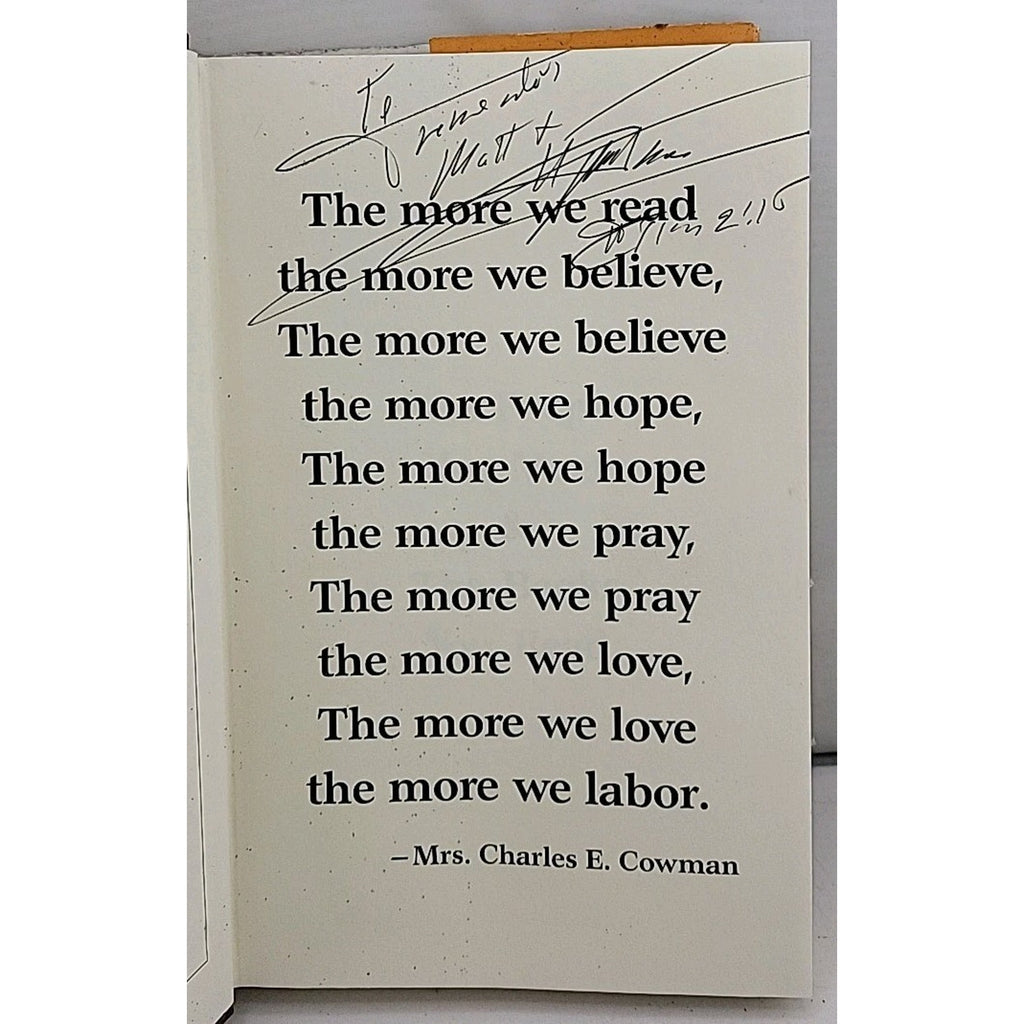 Matt +
The more we read
2:15
the more we believe,
The more we believe
the more we hope,
The more we hope
the more we pray,
The more we pray
the more we love,
The more we love
the more we labor.
–Mrs. Charles E. Cowman